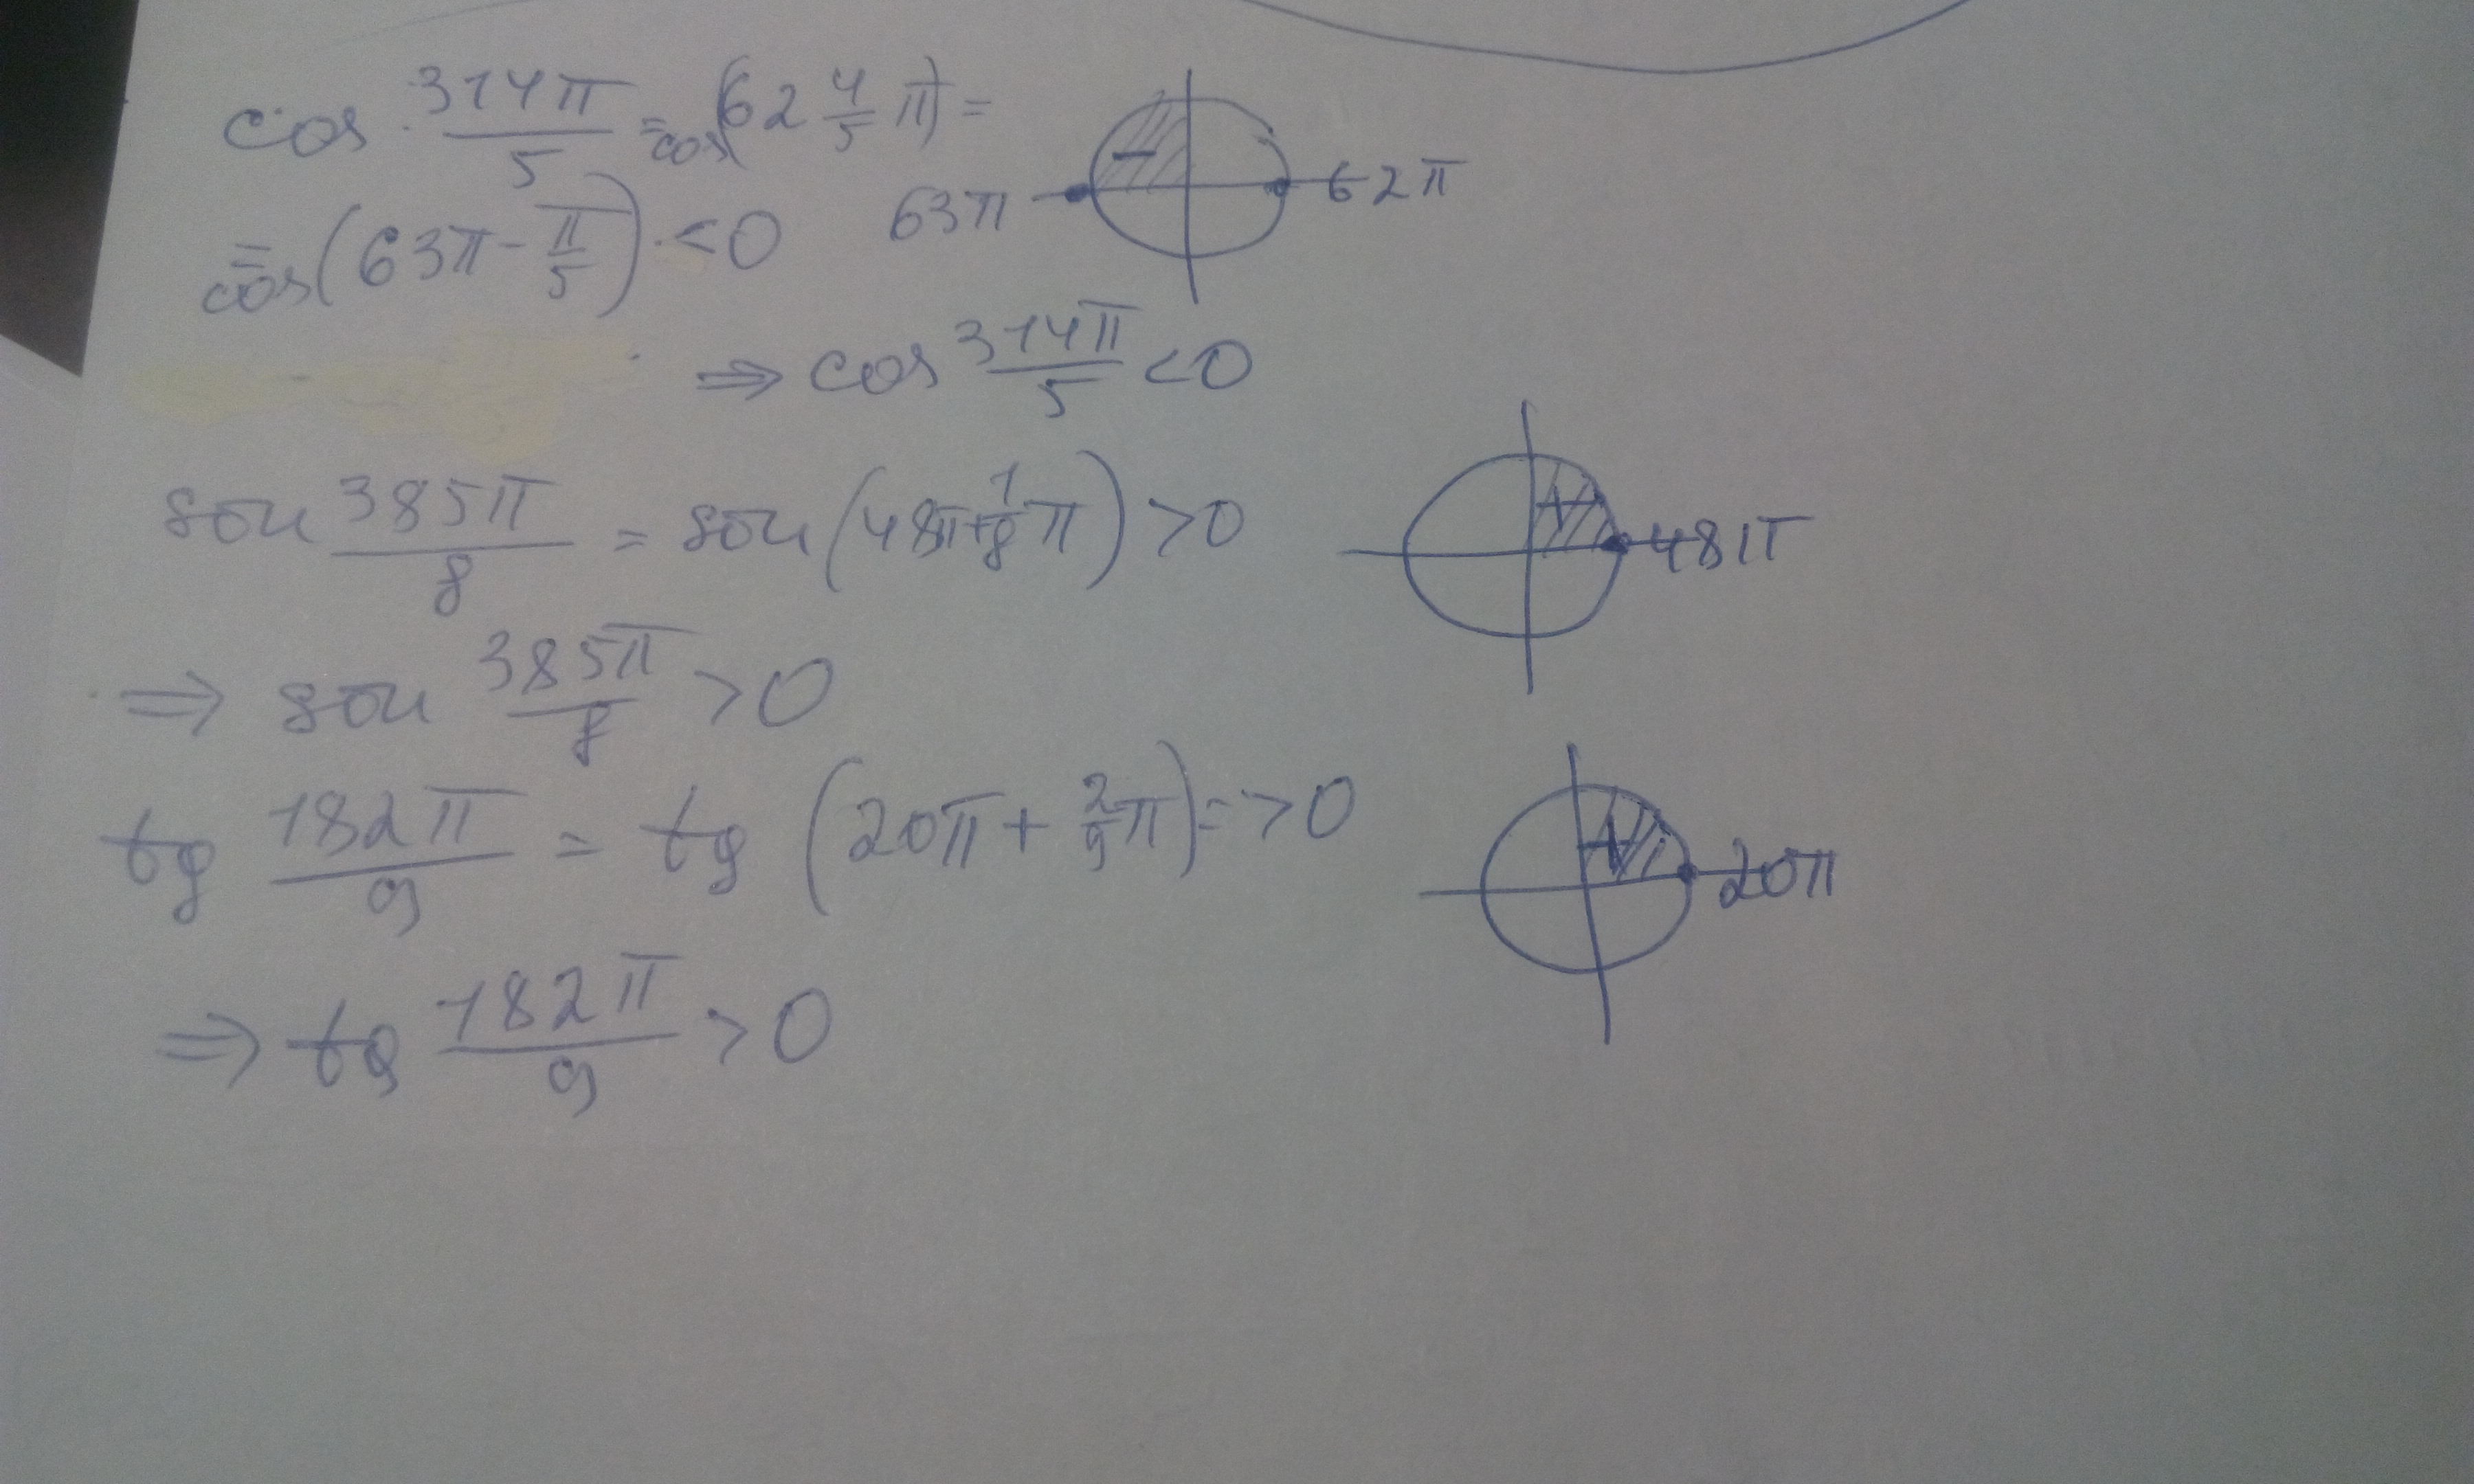 cos 314π/5 = cos(62 4/5 π) =
= cos(63π - π/5) < 0
63π 62π
-
⇒ cos 314π/5 < 0
sin 385π/8 = sin(48π + 1/8 π) > 0
+ 48π
⇒ sin 385π/8 > 0
tg 182π/9 = tg (20π + 2/9 π) = > 0
+ 20π
⇒ tg 182π/9 > 0